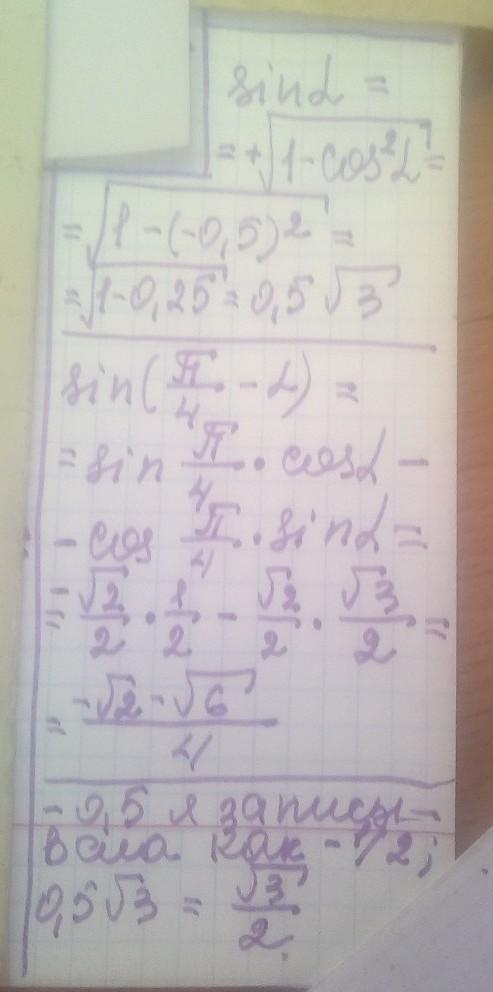 sin α =
= +√(1 - cos²α) =
= √(1 - (-0,5)²) =
= √(1-0,25) = 0,5 √3
sin(π/4 - α) =
= sin π/4 · cos α -
- cos π/4 · sin α =
= -√2/2 · 1/2 - √2/2 · √3/2 =
= (-√2 - √6)/4
- 0,5 я записы-
вала как -1/2;
0,5√3 = √3/2.